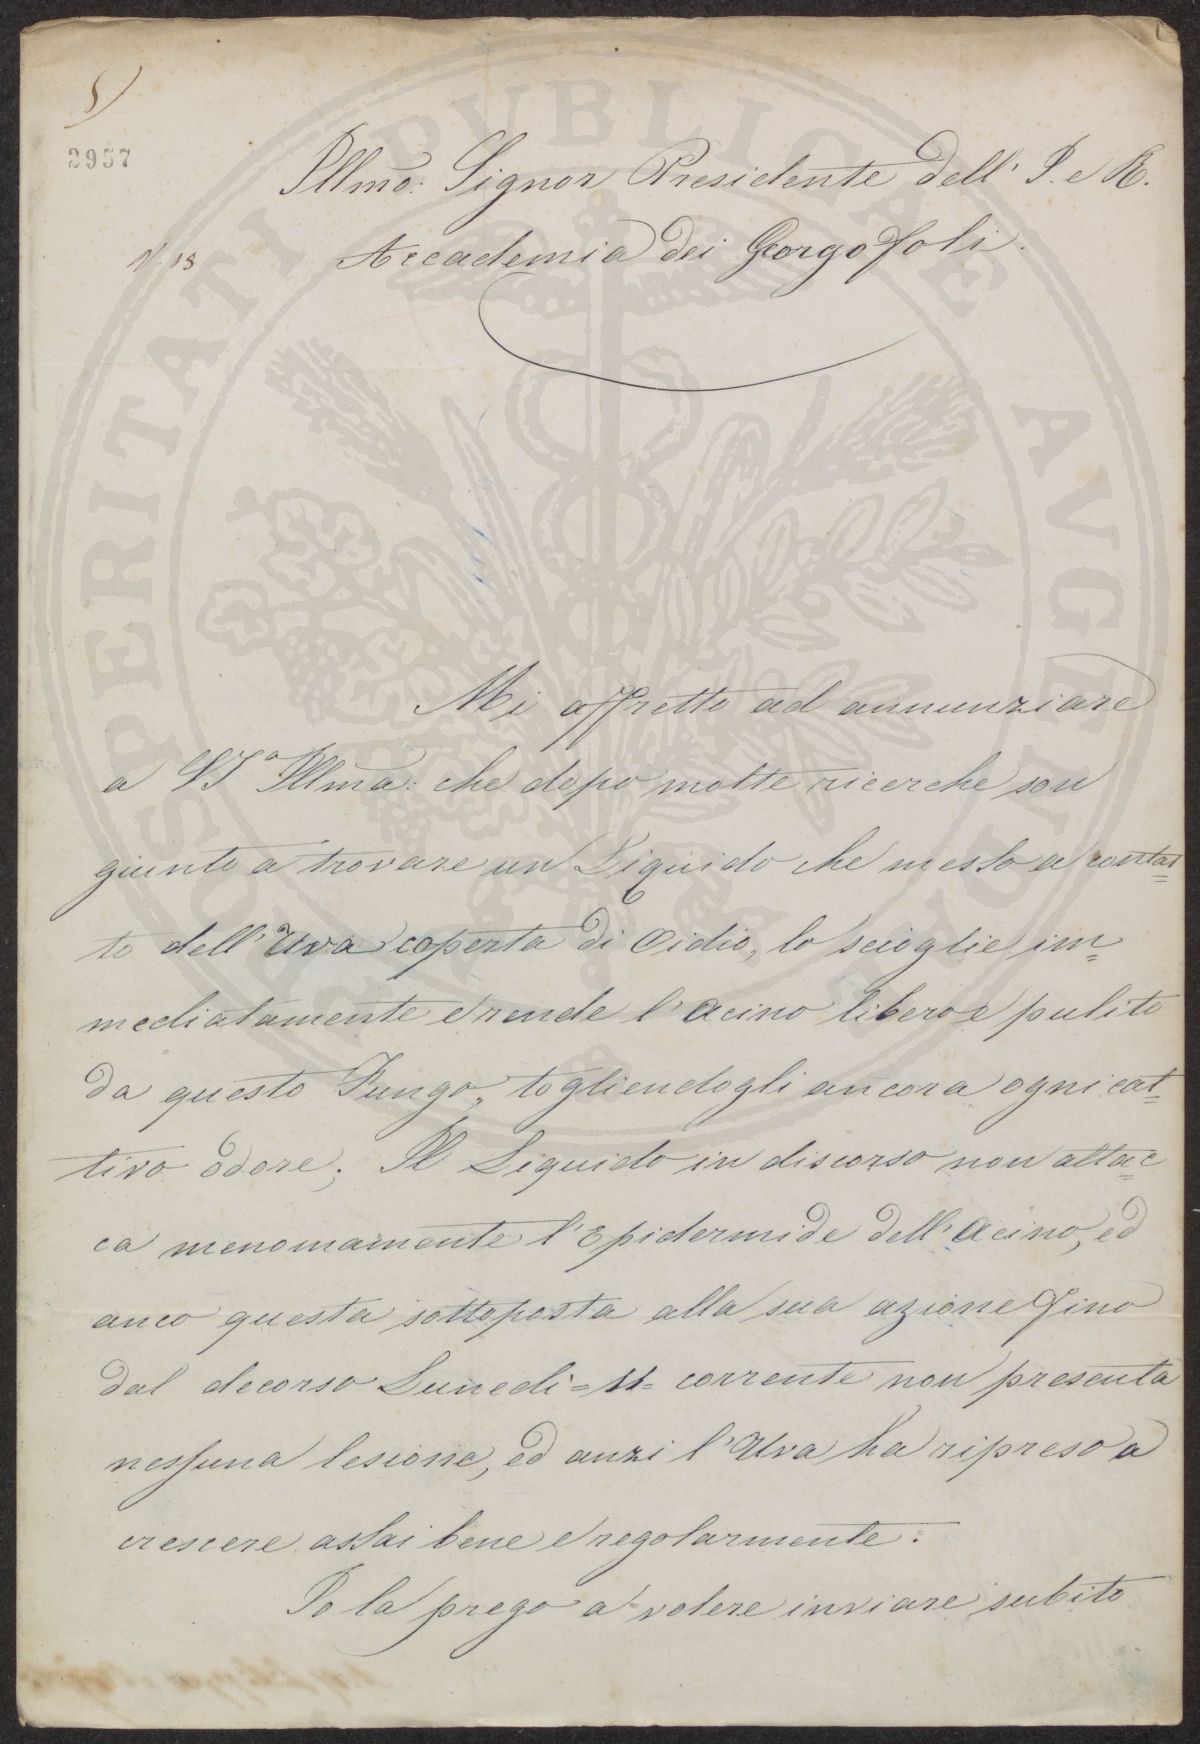 5)
2957
Illmo: Signor Presidente dell' I. e R.
N. 18
Accademia dei Georgofoli.
Mi affretto ad annunziare
a VSa Illma: che dopo molte ricerche son
giunto a trovare un Liquido che messo a contat=
to dell'Uva coperta di Oidio, lo scioglie im=
mediatamente e rende l'Acino libero e pulito
da questo Fungo, togliendogli ancora ogni cat=
tivo odore; Il Liquido in discorso non attac=
ca menomamente l'Epidermide dell'Acino, ed
anco questa sottoposta alla sua azione fino
dal decorso Lunedi = 11 = corrente non presenta
nessuna lesione, ed anzi l'Uva ha ripreso a
crescere assai bene e regolarmente:
Io la prego a volere inviare subito
PROSPERITATI PVBLICAE AVGENDAE